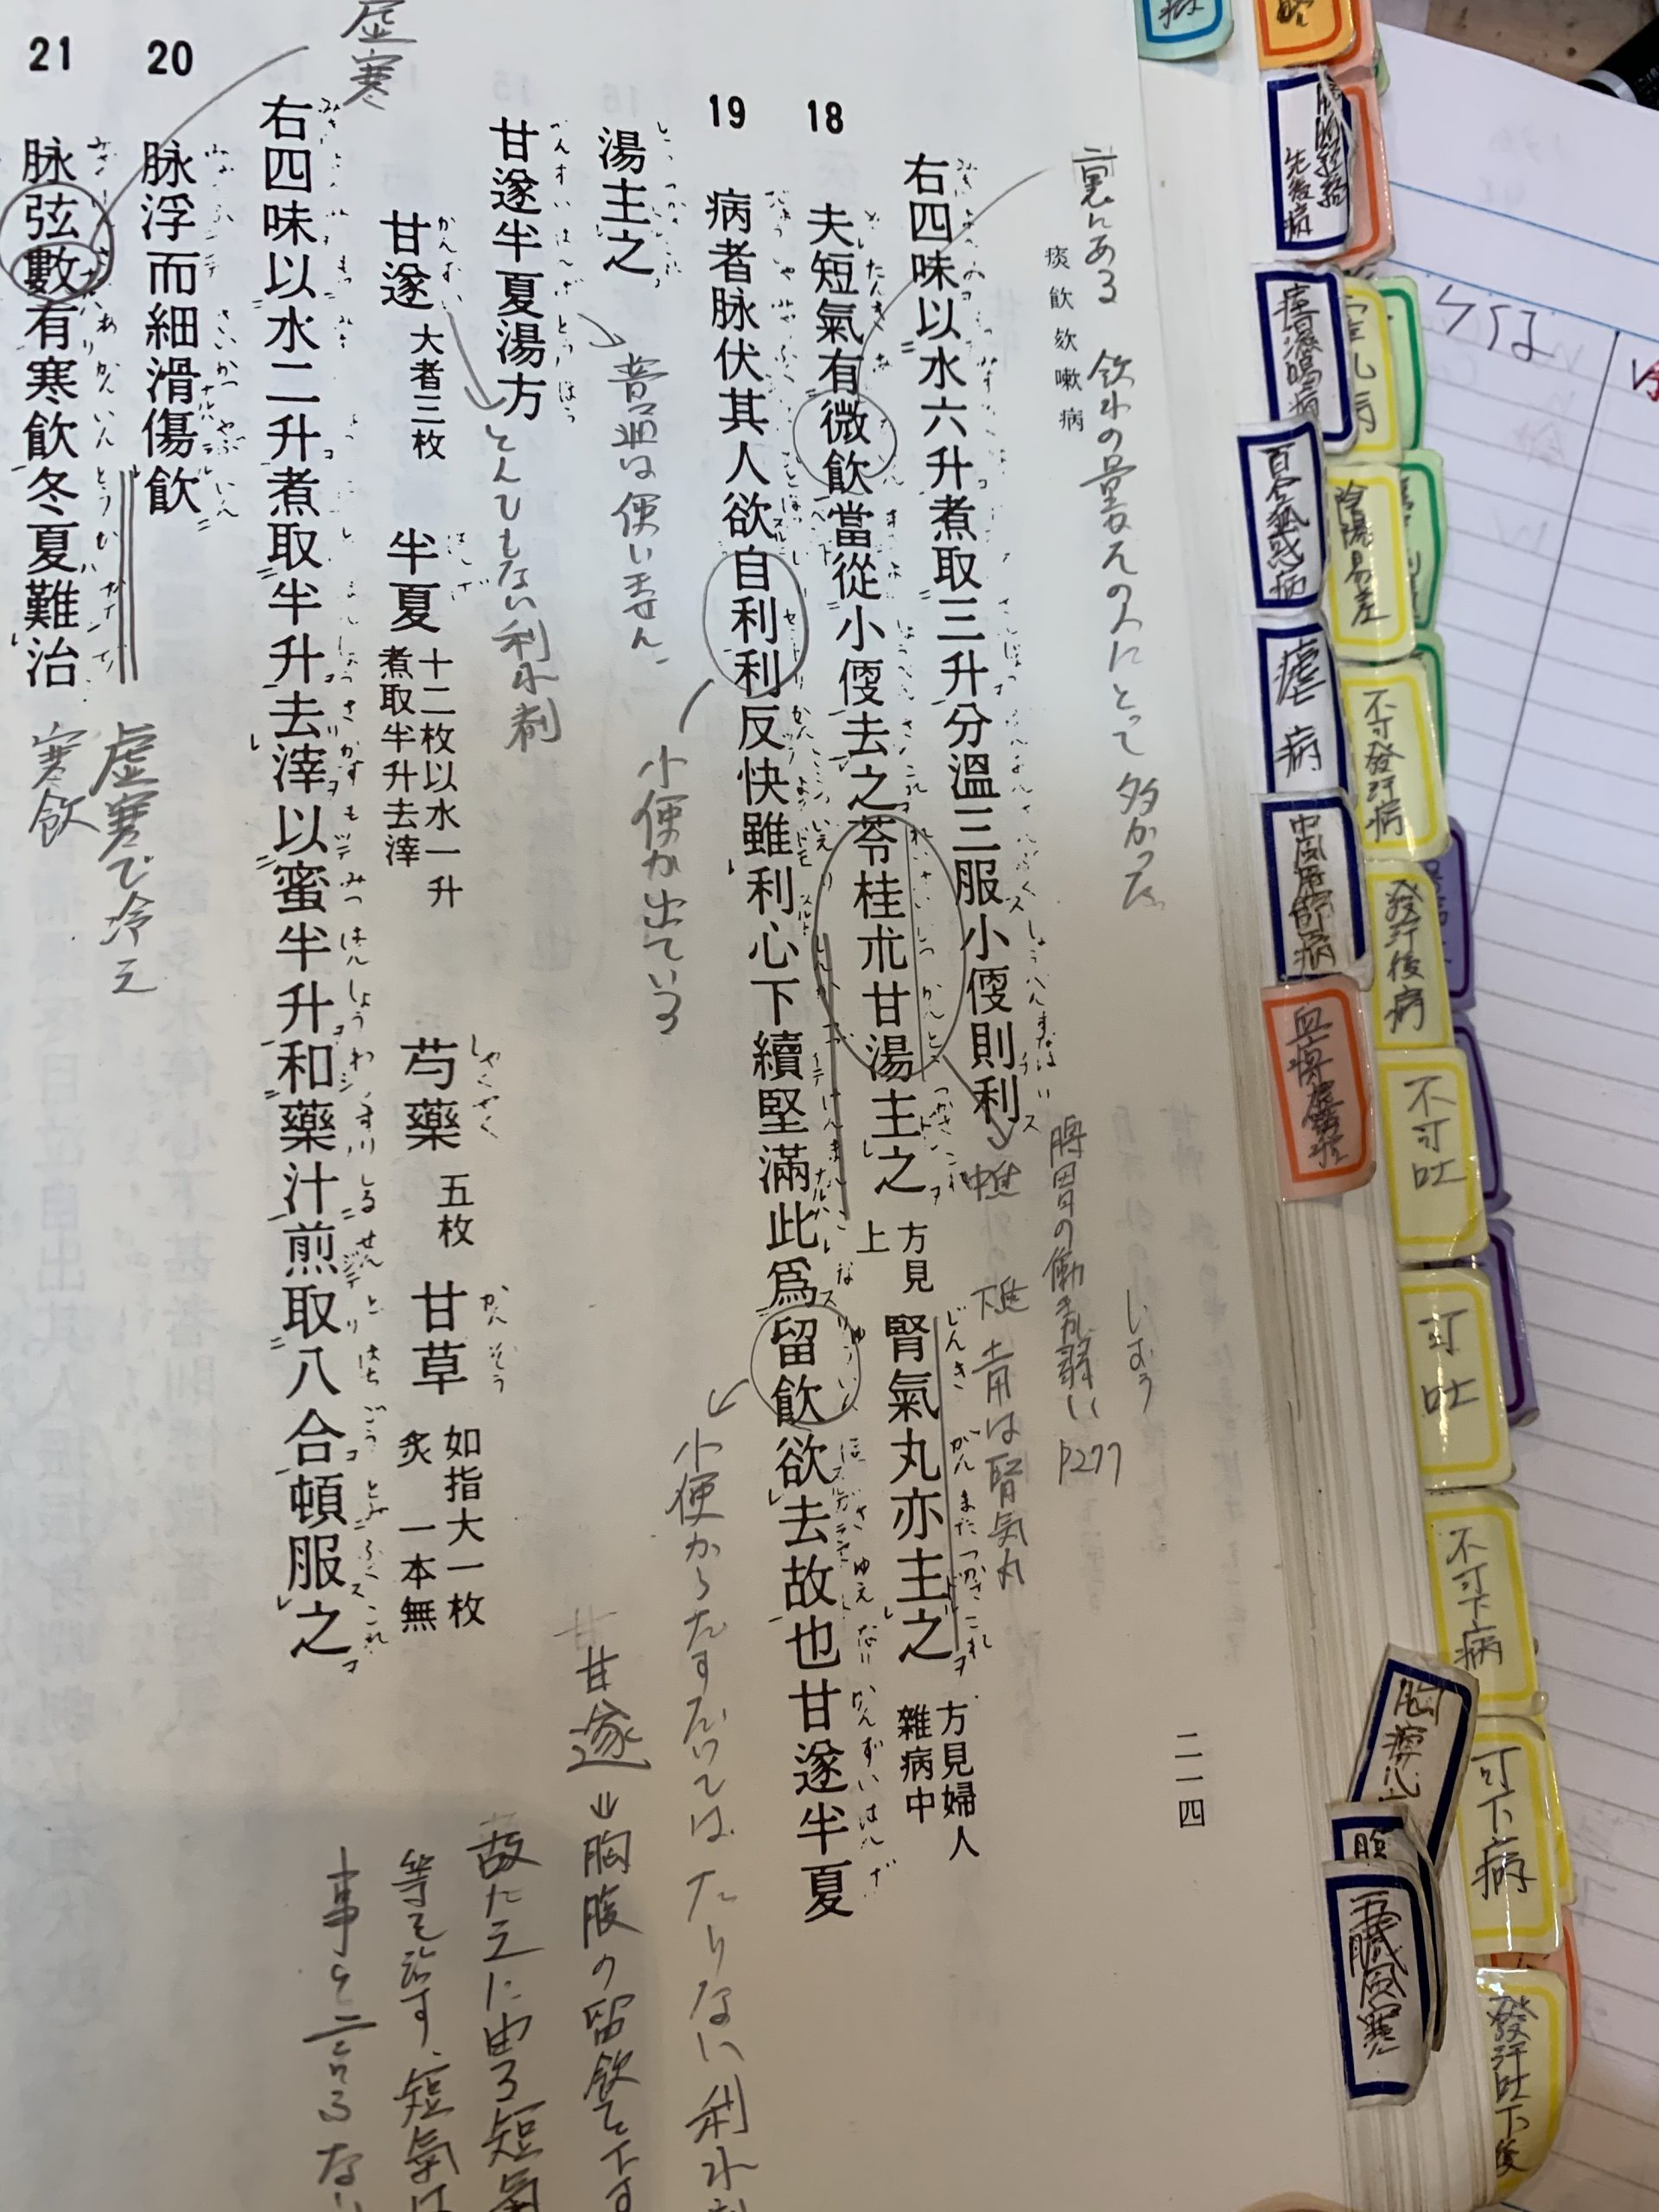 二一四
痰飲欬嗽病
裏にある 飲水の量その人にとって多かった
右四味以水六升煮取三升分溫三服小便則利
18
夫短氣有微飲當從小便去之苓桂朮甘湯主之
方見
上
腎氣丸亦主之
方見婦人
雜病中
脾胃の働きが弱い P277
下焦 昔は腎気丸
19
病者脉伏其人欲自利利反快雖利心下續堅滿此爲留飲欲去故也甘遂半夏
湯主之
小便が出ている
普通は使いません
甘遂半夏湯方
とんでもない利水剤
甘遂
大者三枚
半夏
十二枚以水一升
煮取半升去滓
芍藥
五枚
甘草
如指大一枚
炙 一本無
右四味以水二升煮取半升去滓以蜜半升和藥汁煎取八合頓服之
20
脉浮而細滑傷飲
21
脉弦數有寒飲冬夏難治
虚寒
虚寒で冷え
寒飲
甘遂
胸腹の留飲を下す
故たえに由る短氣
等を治す、短氣は
痙濕暍病
百合狐惑病
瘧病
中風歷節病
血痺虚勞病
陰陽易差
不可發汗病
發汗後病
不可吐
可吐
不可下病
可下病
發汗吐下後
五臓風寒